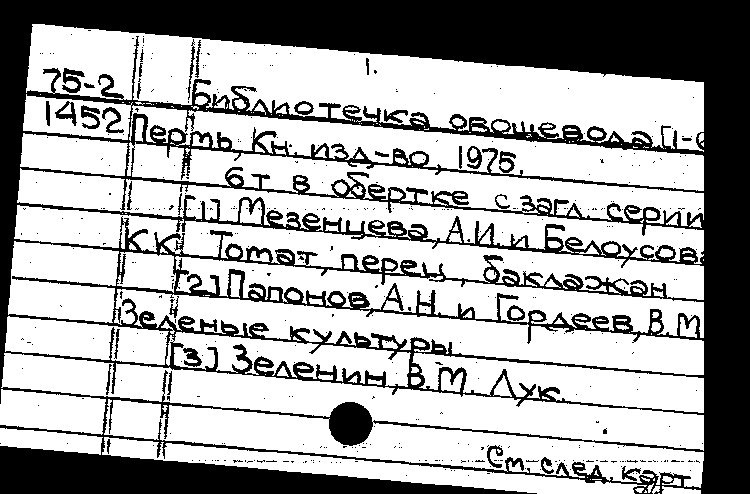 1.
75-2 Библиотечка овощевода. [1-6
1452 Пермь, Кн. изд-во, 1975.
6 т в обертке с загл. серии
[1] Мезенцева, А.И. и Белоусова
К.К. Томат, перец, баклажан.
[2] Папонов, А.Н. и Гордеев, В.М.
Зеленые культуры.
[3] Зеленин, В.М. Лук.
См. след. карт.